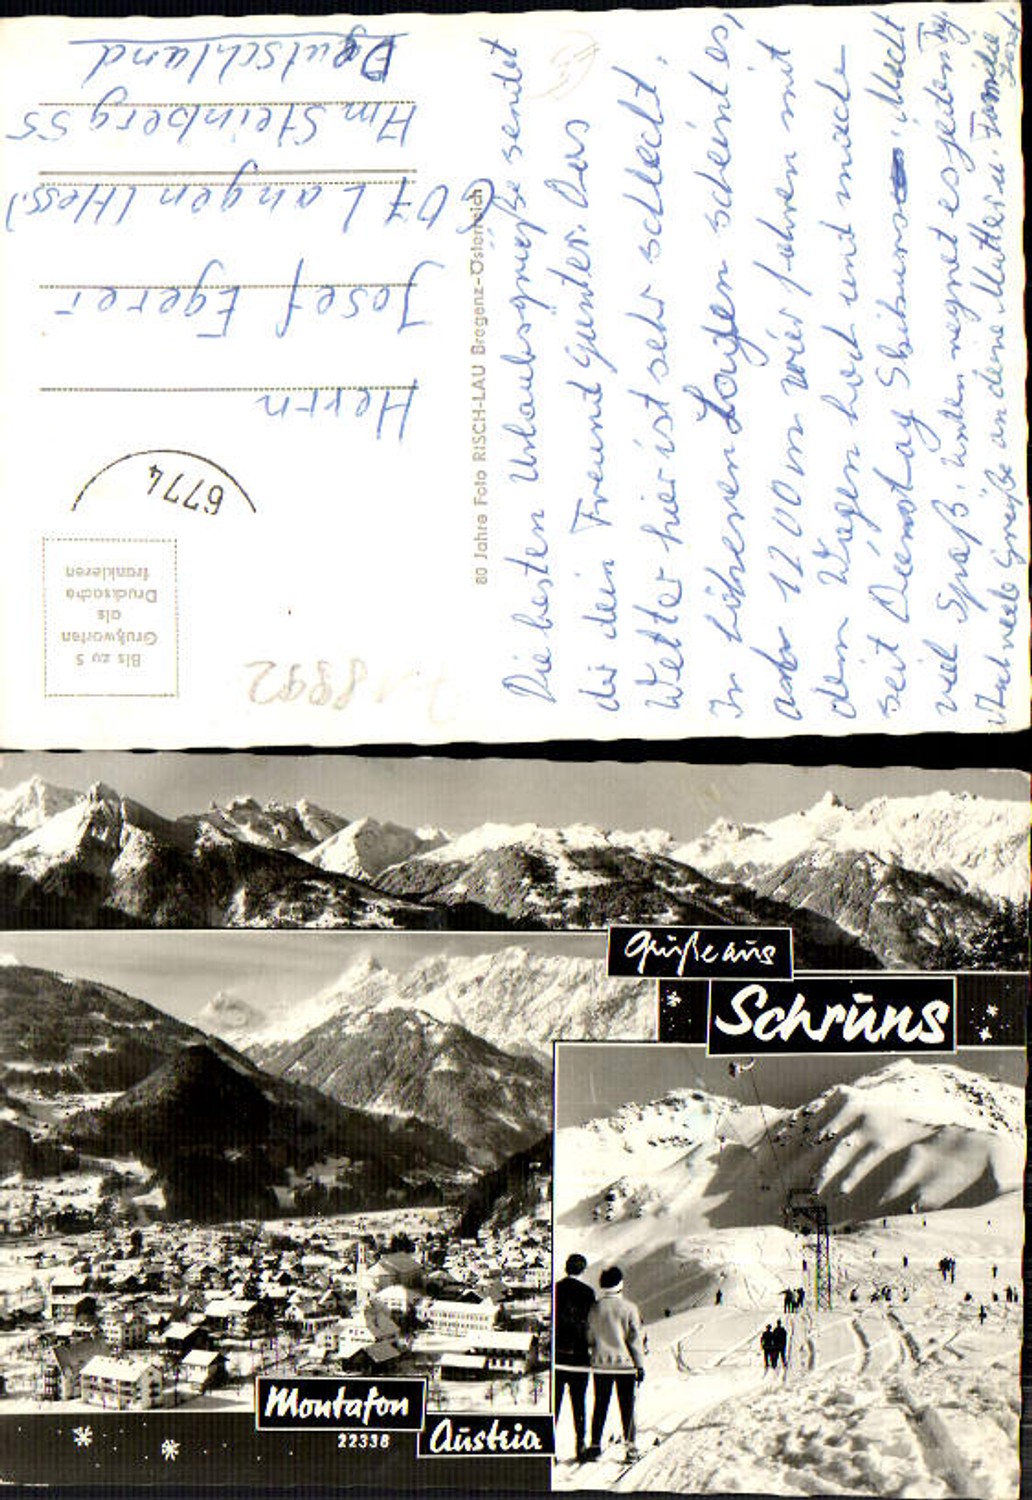 Herrn
Josef Egerer
607 Langen (Hess.)
Am Steinberg 55
Deutschland
6774
Bis zu 5
Grußworten
als
Drucksache
frankieren
80 Jahre Foto RISCH-LAU Bregenz-Österreich
18992
Die besten Urlaubsgrüße sendet
dir dein Freund Günter. Das
Wetter hier ist sehr schlecht.
In höheren Lagen schneit es,
1200 m wir fahren mit
dem Wagen hoch und
seit Dienstag Macht
viel Spaß. Unten regnet es jeden Tag.
viele Grüße an deine Mutter u. Familie
Grüße aus
Schruns
Montafon
22338
Austria